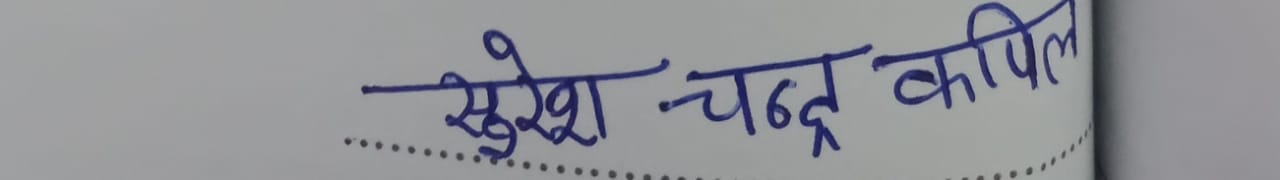 सुरेश चन्द्र कपिल